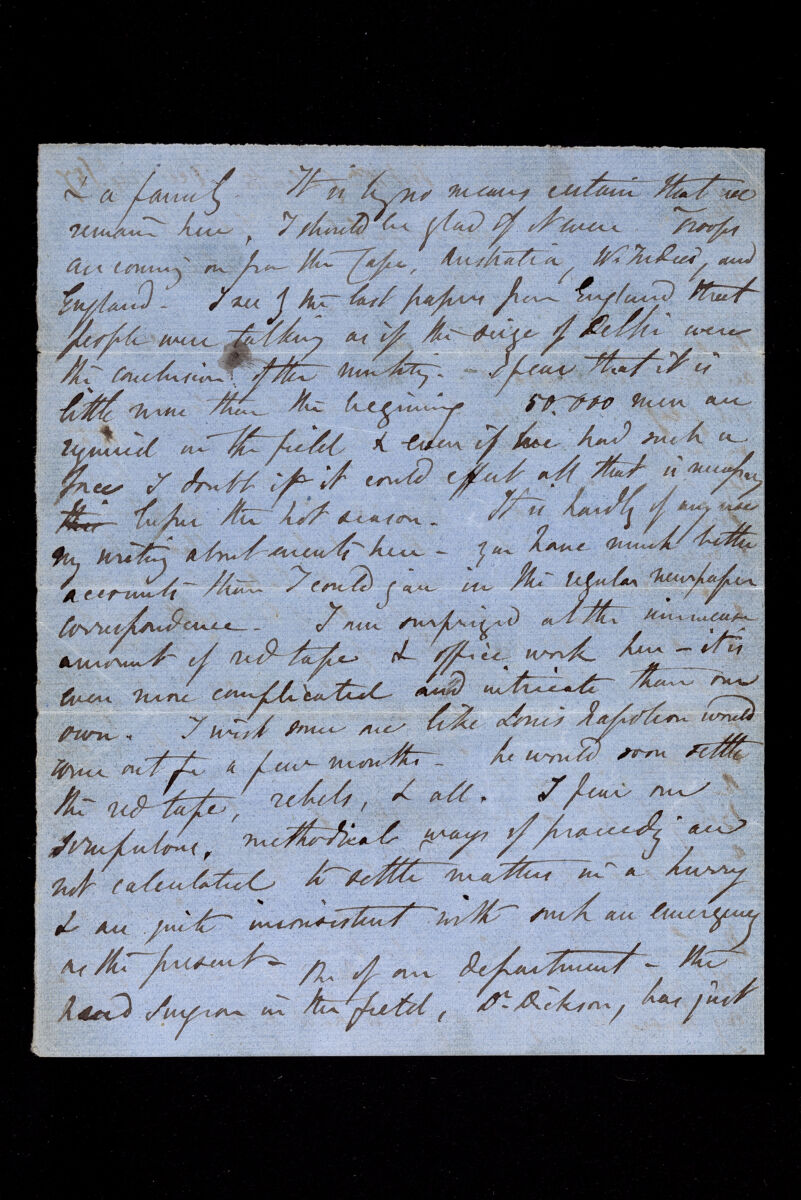 & a family. It is by no means certain that we
remain here, I should be glad if I were. Troops
are coming on from the Cape, Australia, W. Indies, and
England. I see by the last papers from England that
people were talking as if the seige of Delhi were
the conclusion of the mutiny. - I fear that it is
little more than the beginning 50.000 men are
required in the field & even if we had such a
force I doubt if it could effect all that is necessary
this before the hot season. It is hardly of any use
my writing about events here - you have much better
accounts than I could give in the regular newspaper
correspondence. I am surprized at the immense
amount of red tape & office work here - it is
even more complicated and intricate than our
own. I wish some one like Louis Napoleon would
come out for a few months - he would soon settle
the red tape, rebels, & all. I fear our
scrupulous, methodical ways of proceedg are
not calculated to settle matters in a hurry
& are quite inconsistent with such an emergency
as the present - One of our department - the
head Surgeon in the field, Dr. Dickson, has just